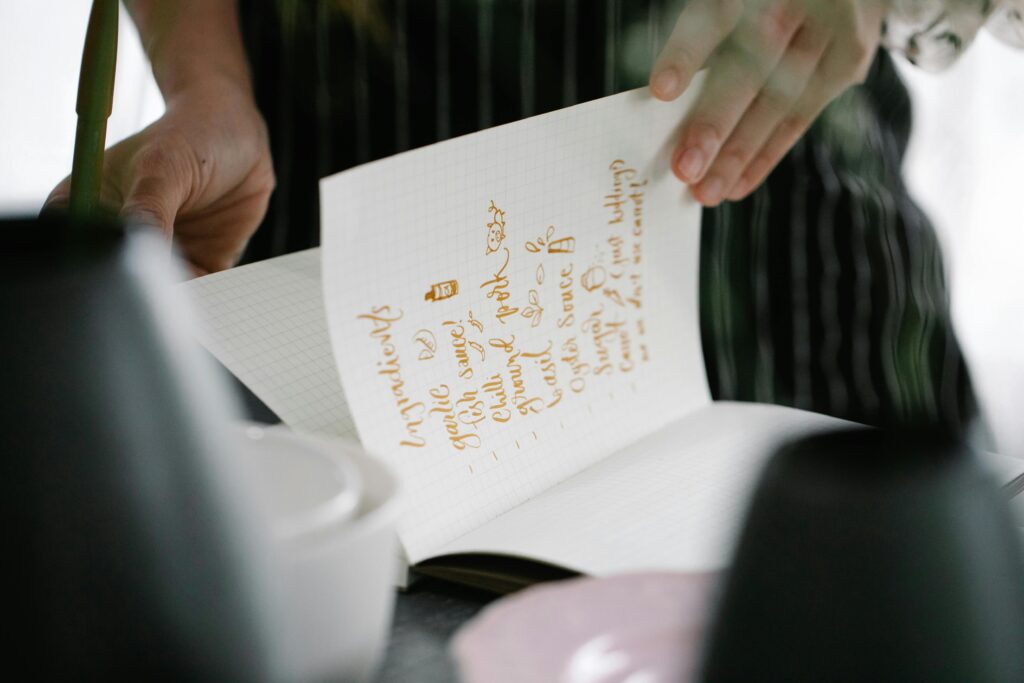 Ingradients
- garlic
- fish sauce!
- Chilli
- ground pork
- basil
- Oyster sauce
- Sugar
- Carrot (Just kidding)
we don't use carrot